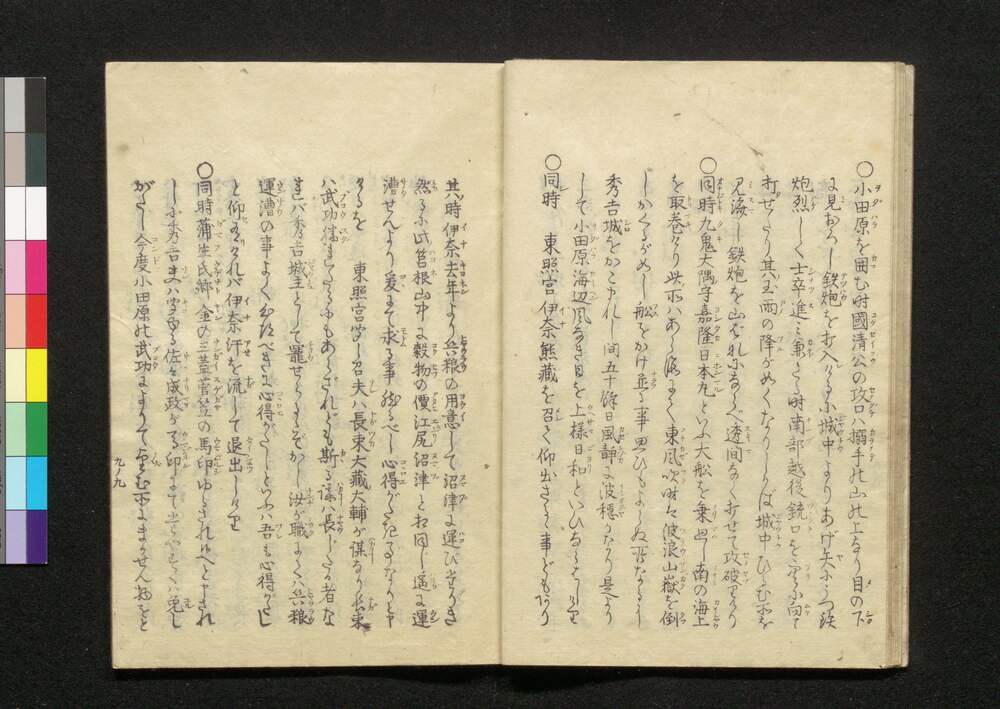 ○小田原を囲む時國清公の攻口ハ搦手の山の上なり目の下
に見おろし鉄炮を打入けるに城中よりあげ矢にうつ鉄
炮烈しく士卒進ミ兼たる時南部越後銃口を空に向て
打せたり其玉雨の降がめくなりしかば城中ひるむ所を
見海し鉄炮を山おれになら透間なく打せて攻破りけり
○同時九鬼大隅守嘉隆日本丸といふ大舩を乗出し南の海上
を取巻けり此所ハあら海にて東風吹時ハ波浪山嶽を倒
しかくるがめし舩をかけ並る事思ひもよらぬ所なるに
秀吉城をかこまれし間五十餘日風静に波穏なり是より
して小田原海辺風なき日を上様日和といひならはしけり
○同時 東照宮伊奈熊藏を召て仰出さるゝ事どもあり
其時伊奈去年より兵粮の用意して沼津に運び
然るに此筥根山中に穀物の價江尻沼津と相同し遥に運
漕せんより爰にて求る事然るべし心得がたき事なりと申
けるを 東照宮聞し召夫ハ長束大藏大輔が謀なり長束
ハ武功勝れたるにもあらざれども斯る様ハ長じたる者な
ればバ秀吉城主として罷せらるゝぞかし汝が職にてハ兵粮
運漕の事よく心得べきに心得がたしといふハ吾も心得がたし
と仰有けれバ伊奈汗を流して退出しけり
○同時蒲生氏郷金の三蓋菅笠の馬印ゆるされ候へと申され
しに秀吉夫ハ聞る佐々成政が印にて
がたし今度小田原の武功によりて望む所にまかせん物をと
九ノ九